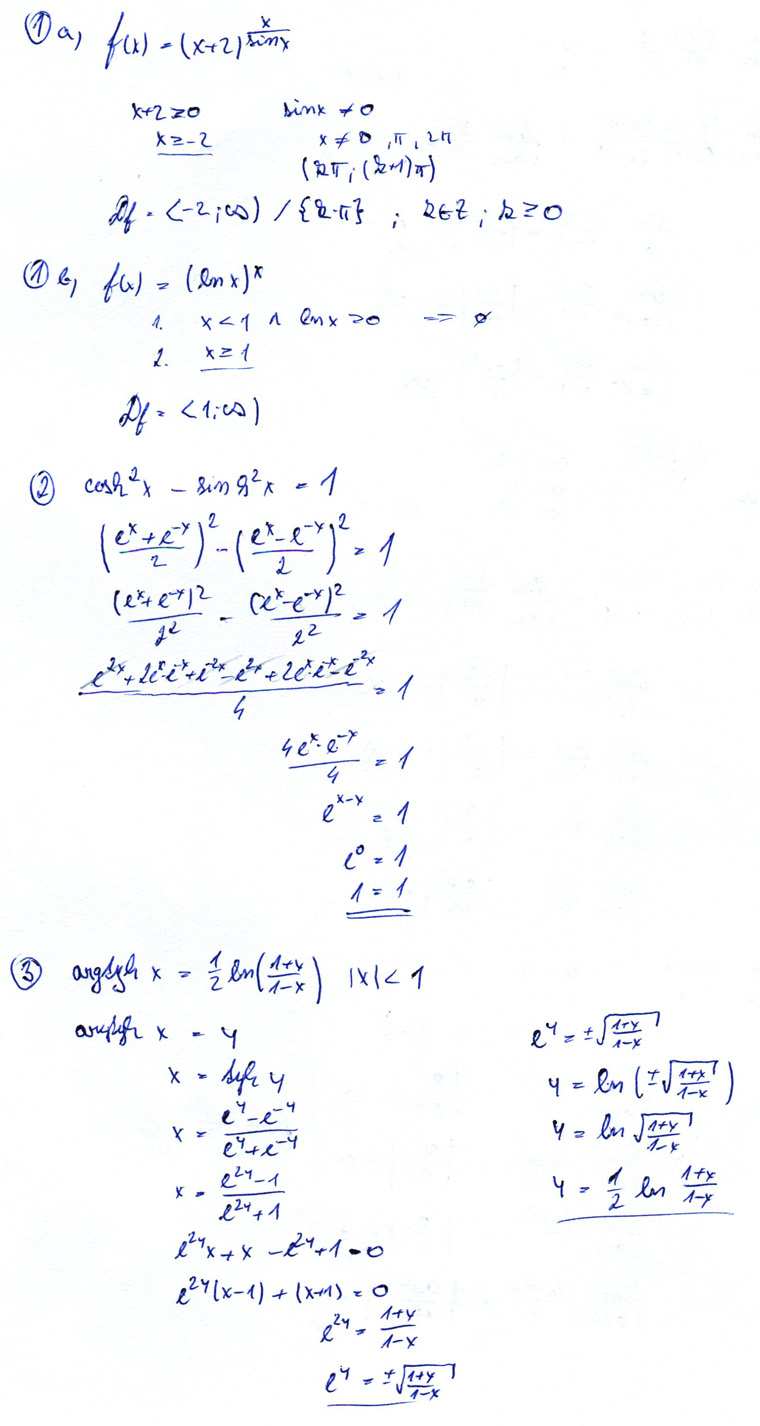 ① a, f(x) = (x+2)^(x/sinx)
x+2 ≥ 0    sinx ≠ 0
x ≥ -2    x ≠ 0, π, 2π
(kπ; (k+1)π)
Df = <-2; ∞) / {k·π} ; k∈Z ; k ≥ 0
① b, f(x) = (ln x)^x
1. x < 1 ∧ ln x > 0 == ∅
2. x ≥ 1
Df = <1; ∞)
② cosh²x - sinh²x = 1
((e^x + e^-x)/2)² - ((e^x - e^-x)/2)² = 1
(e^x + e^-x)²/2² - (e^x - e^-x)²/2² = 1
(e^2x + 2e^x·e^-x + e^-2x - e^2x + 2e^x·e^-x - e^-2x)/4 = 1
4e^x·e^-x/4 = 1
e^(x-x) = 1
e^0 = 1
1 = 1
③ argtgh x = 1/2 ln((1+x)/(1-x)) |x| < 1
argtgh x = y
x = tgh y
x = (e^y - e^-y)/(e^y + e^-y)
x = (e^2y - 1)/(e^2y + 1)
e^2y x + x - e^2y + 1 = 0
e^2y (x-1) + (x+1) = 0
e^2y = (1+x)/(1-x)
e^y = ±√((1+x)/(1-x))
e^y = ±√((1+x)/(1-x))
y = ln(±√((1+x)/(1-x)))
y = ln √((1+x)/(1-x))
y = 1/2 ln (1+x)/(1-x)